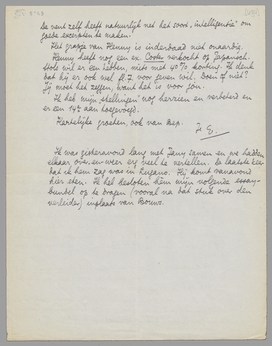 De vent zelf heeft natuurlijk net het soort „intelligentie” om
goede excerpten te maken.
Het grapje van Henny is inderdaad niet onaardig.
Henny heeft nog een ex. verkocht op Japansch.
Stols wil er een hebben, mits met 40 % korting. Ik denk
dat hij er ook wel fl. 7 voor geven wil. Doen of niet?
Jij moet het zeggen, want het is voor jou.
Ik heb mijn stellingen nog herzien en verbeterd en
er een 14e aan toegevoegd.
Hartelijke groeten, ook van Bep.
Je E.
Ik was gisteravond lang met Jany samen en we hadden
elkaar over en weer erg veel te vertellen. De laatste keer
dat ik hem zag was in Lugano. Hij komt vanavond
hier eten. Ik heb besloten hem mijn volgende essay-
bundel op te dragen (vooral na dat stuk over den
verleider) inplaats van Bouws.